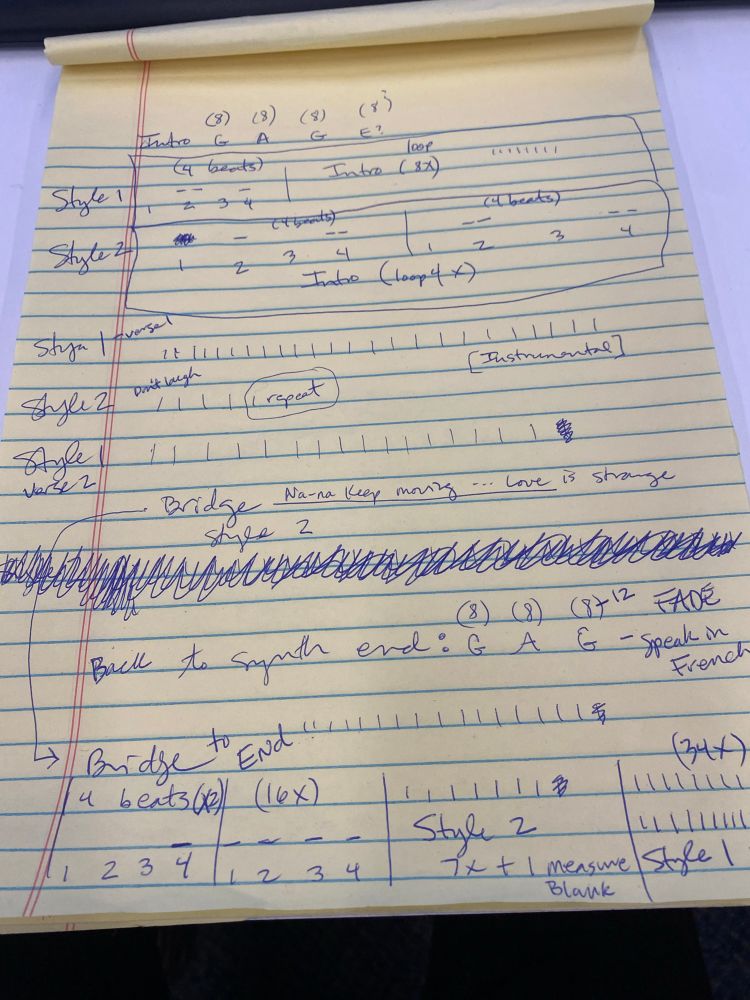 (8) (8) (8) (8)
Intro G A G E?
(4 beats) Intro loop (8x)
Style 1
1 2 3 4
(4 beats) (4 beats)
Style 2
1 2 3 4 1 2 3 4
Intro (loop 4x)
Style 1 - verse 1
[Instrumental]
Don't laugh
Style 2 repeat
Style 1
verse 2
Bridge Na-na Keep moving ... Love is strange
Style 2
(8) (8) (8)+12 FADE
Back to synth end: G A G - speak in
French
Bridge to END
(34x)
4 beats (x2) (16x)
Style 2
1 2 3 4 1 2 3 4 7x + 1 measure Style 1
Blank